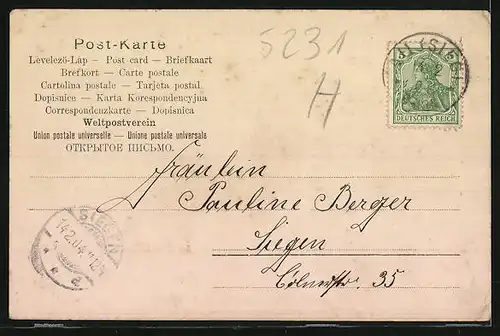 Post-Karte
Levelező-Lap – Post card – Briefkaart
Brefkort – Carte postale
Cartolina postale – Tarjeta postal
Dopisnice – Karta Korespondencyjna
Correspondenzkarte – Dopisnica
Weltpostverein
Union postale universelle – Unione postale universale
ОТКРЫТОЕ ПИСЬМО.
5231
H
DEUTSCHES REICH
SIEGEN
Fräulein
Pauline Berger
Siegen
Cölnerstr. 35